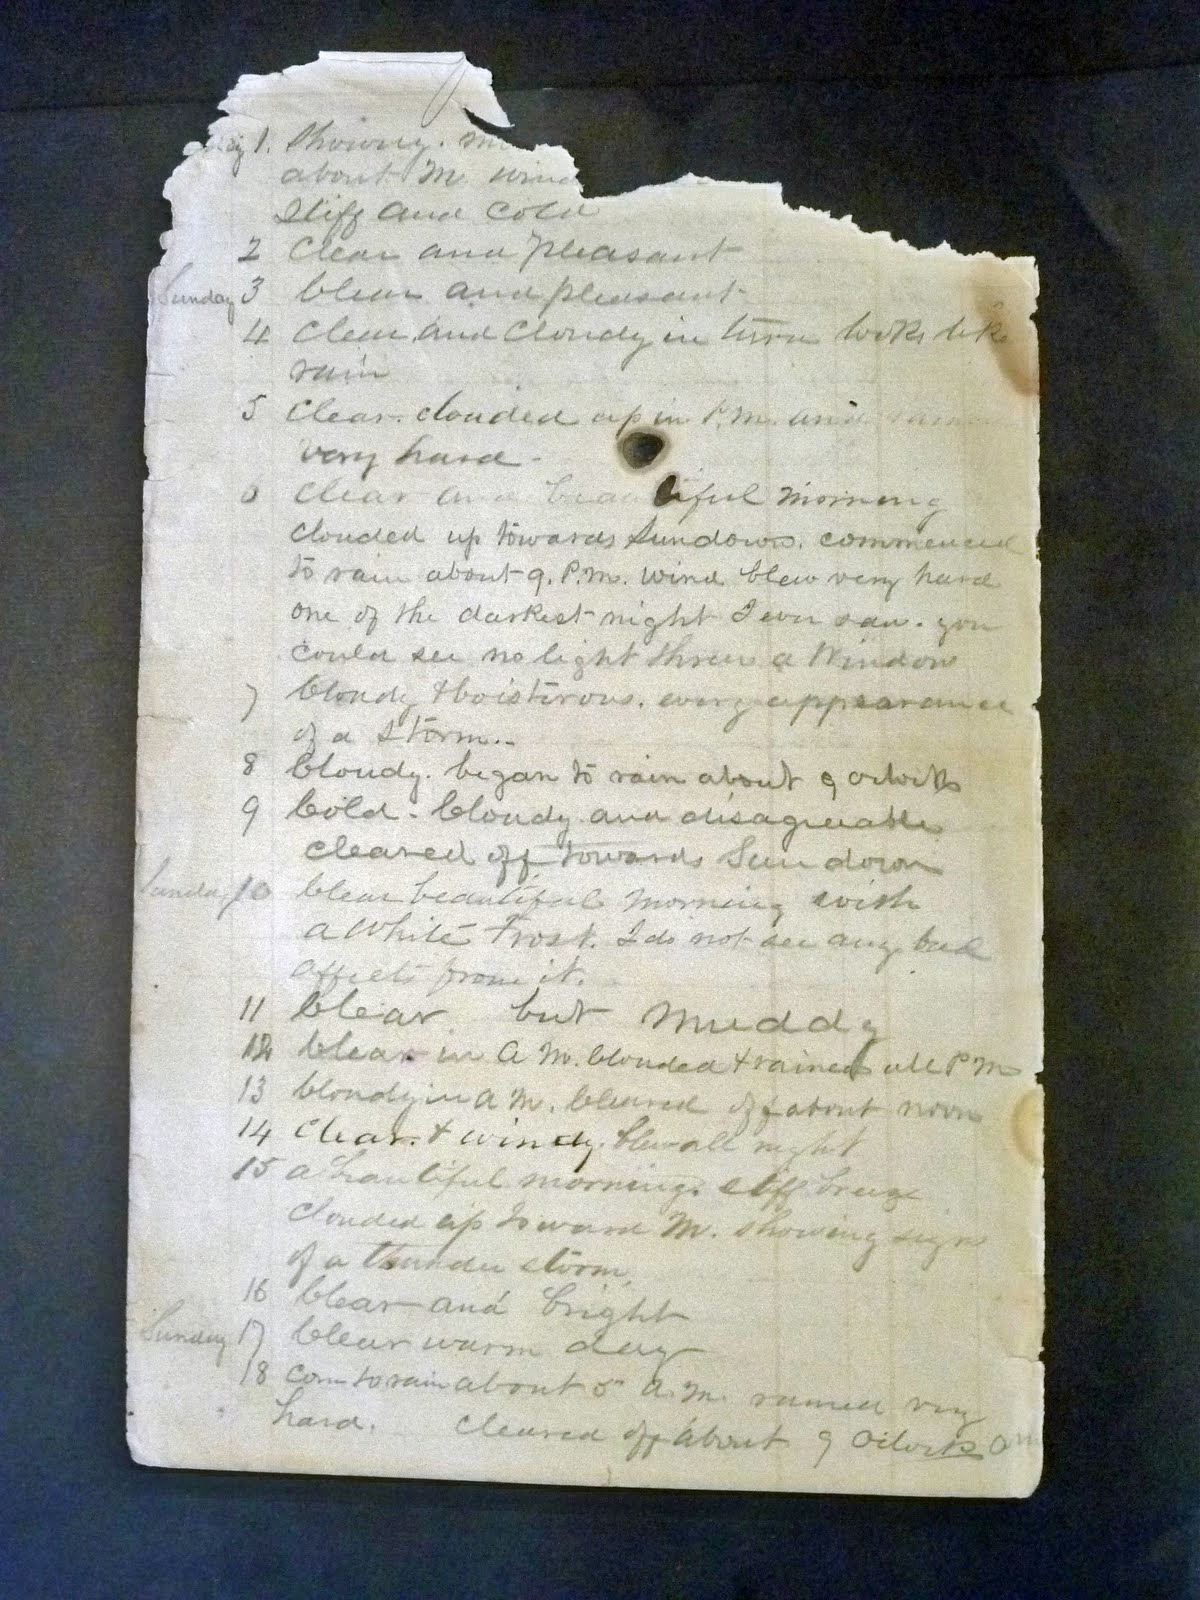 1. Showery.
about M wind
Stiff and Cold
2 Clear and pleasant
Sunday 3 Clear and pleasant
4 Clear and Cloudy in turn looks like
rain
5 Clear. clouded up in P.M. and
very hard -
6 Clear and beautiful morning
clouded up towards Sundown. commenced
to rain about 9. P.M. wind blew very hard
one of the darkest night I ever saw. you
could see no light threw a Window
7 Cloudy & boisterous. every appearance
of a storm..
8 Cloudy. began to rain about 9 oclock
9 Cold - Cloudy and disagreeable
cleared off towards Sun down
Sunday 10 Clear beautiful morning with
a White Frost. I do not see any bad
affects from it.
11 Clear. but Muddy
12 Clear in A M. Clouded & rained all P M
13 Cloudy in A M. Cleared off about noon
14 Clear. & windy. blew all night
15 a beautiful morning. stiff breeze
clouded up toward M. showing signs
of a thunder storm.
16 Clear and bright
Sunday 17 Clear warm day
18 Com to rain about 5 A.M. rained very
hard. Cleared off about 9 Oclock